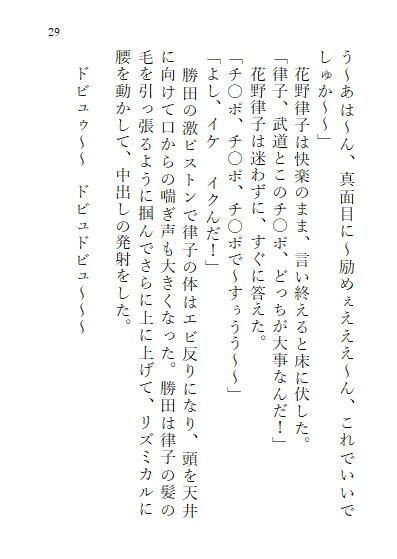 29
う～あは～ん、真面目に～励めぇえええ～ん、これでいいで
しゅか～～」
花野律子は快楽のまま、言い終えると床に伏した。
「律子、武道とこのチ〇ポ、どっちが大事なんだ！」
花野律子は迷わずに、すぐに答えた。
「チ〇ポ、チ〇ポ、チ〇ポで～すぅうう～～」
「よし、イケ　イクんだ！」
勝田の激ピストンで律子の体はエビ反りになり、頭を天井
に向けて口からの喘ぎ声も大きくなった。勝田は律子の髪の
毛を引っ張るように掴んでさらに上に上げて、リズミカルに
腰を動かして、中出しの発射をした。
ドビュゥ～～　ドビュドビュ～～～